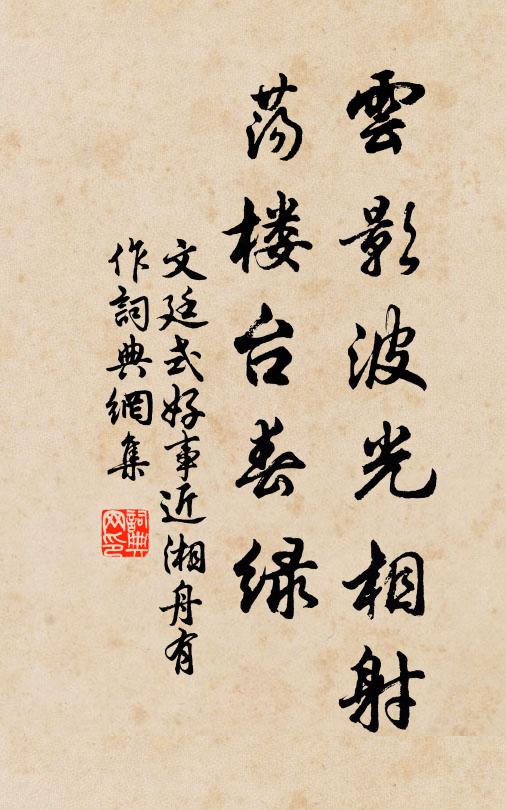 雲影波光相射
荡楼台春绿
文廷式好事近湘舟有
作詞典網集
詞典网印